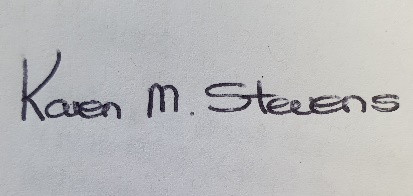 Karen M. Stevens